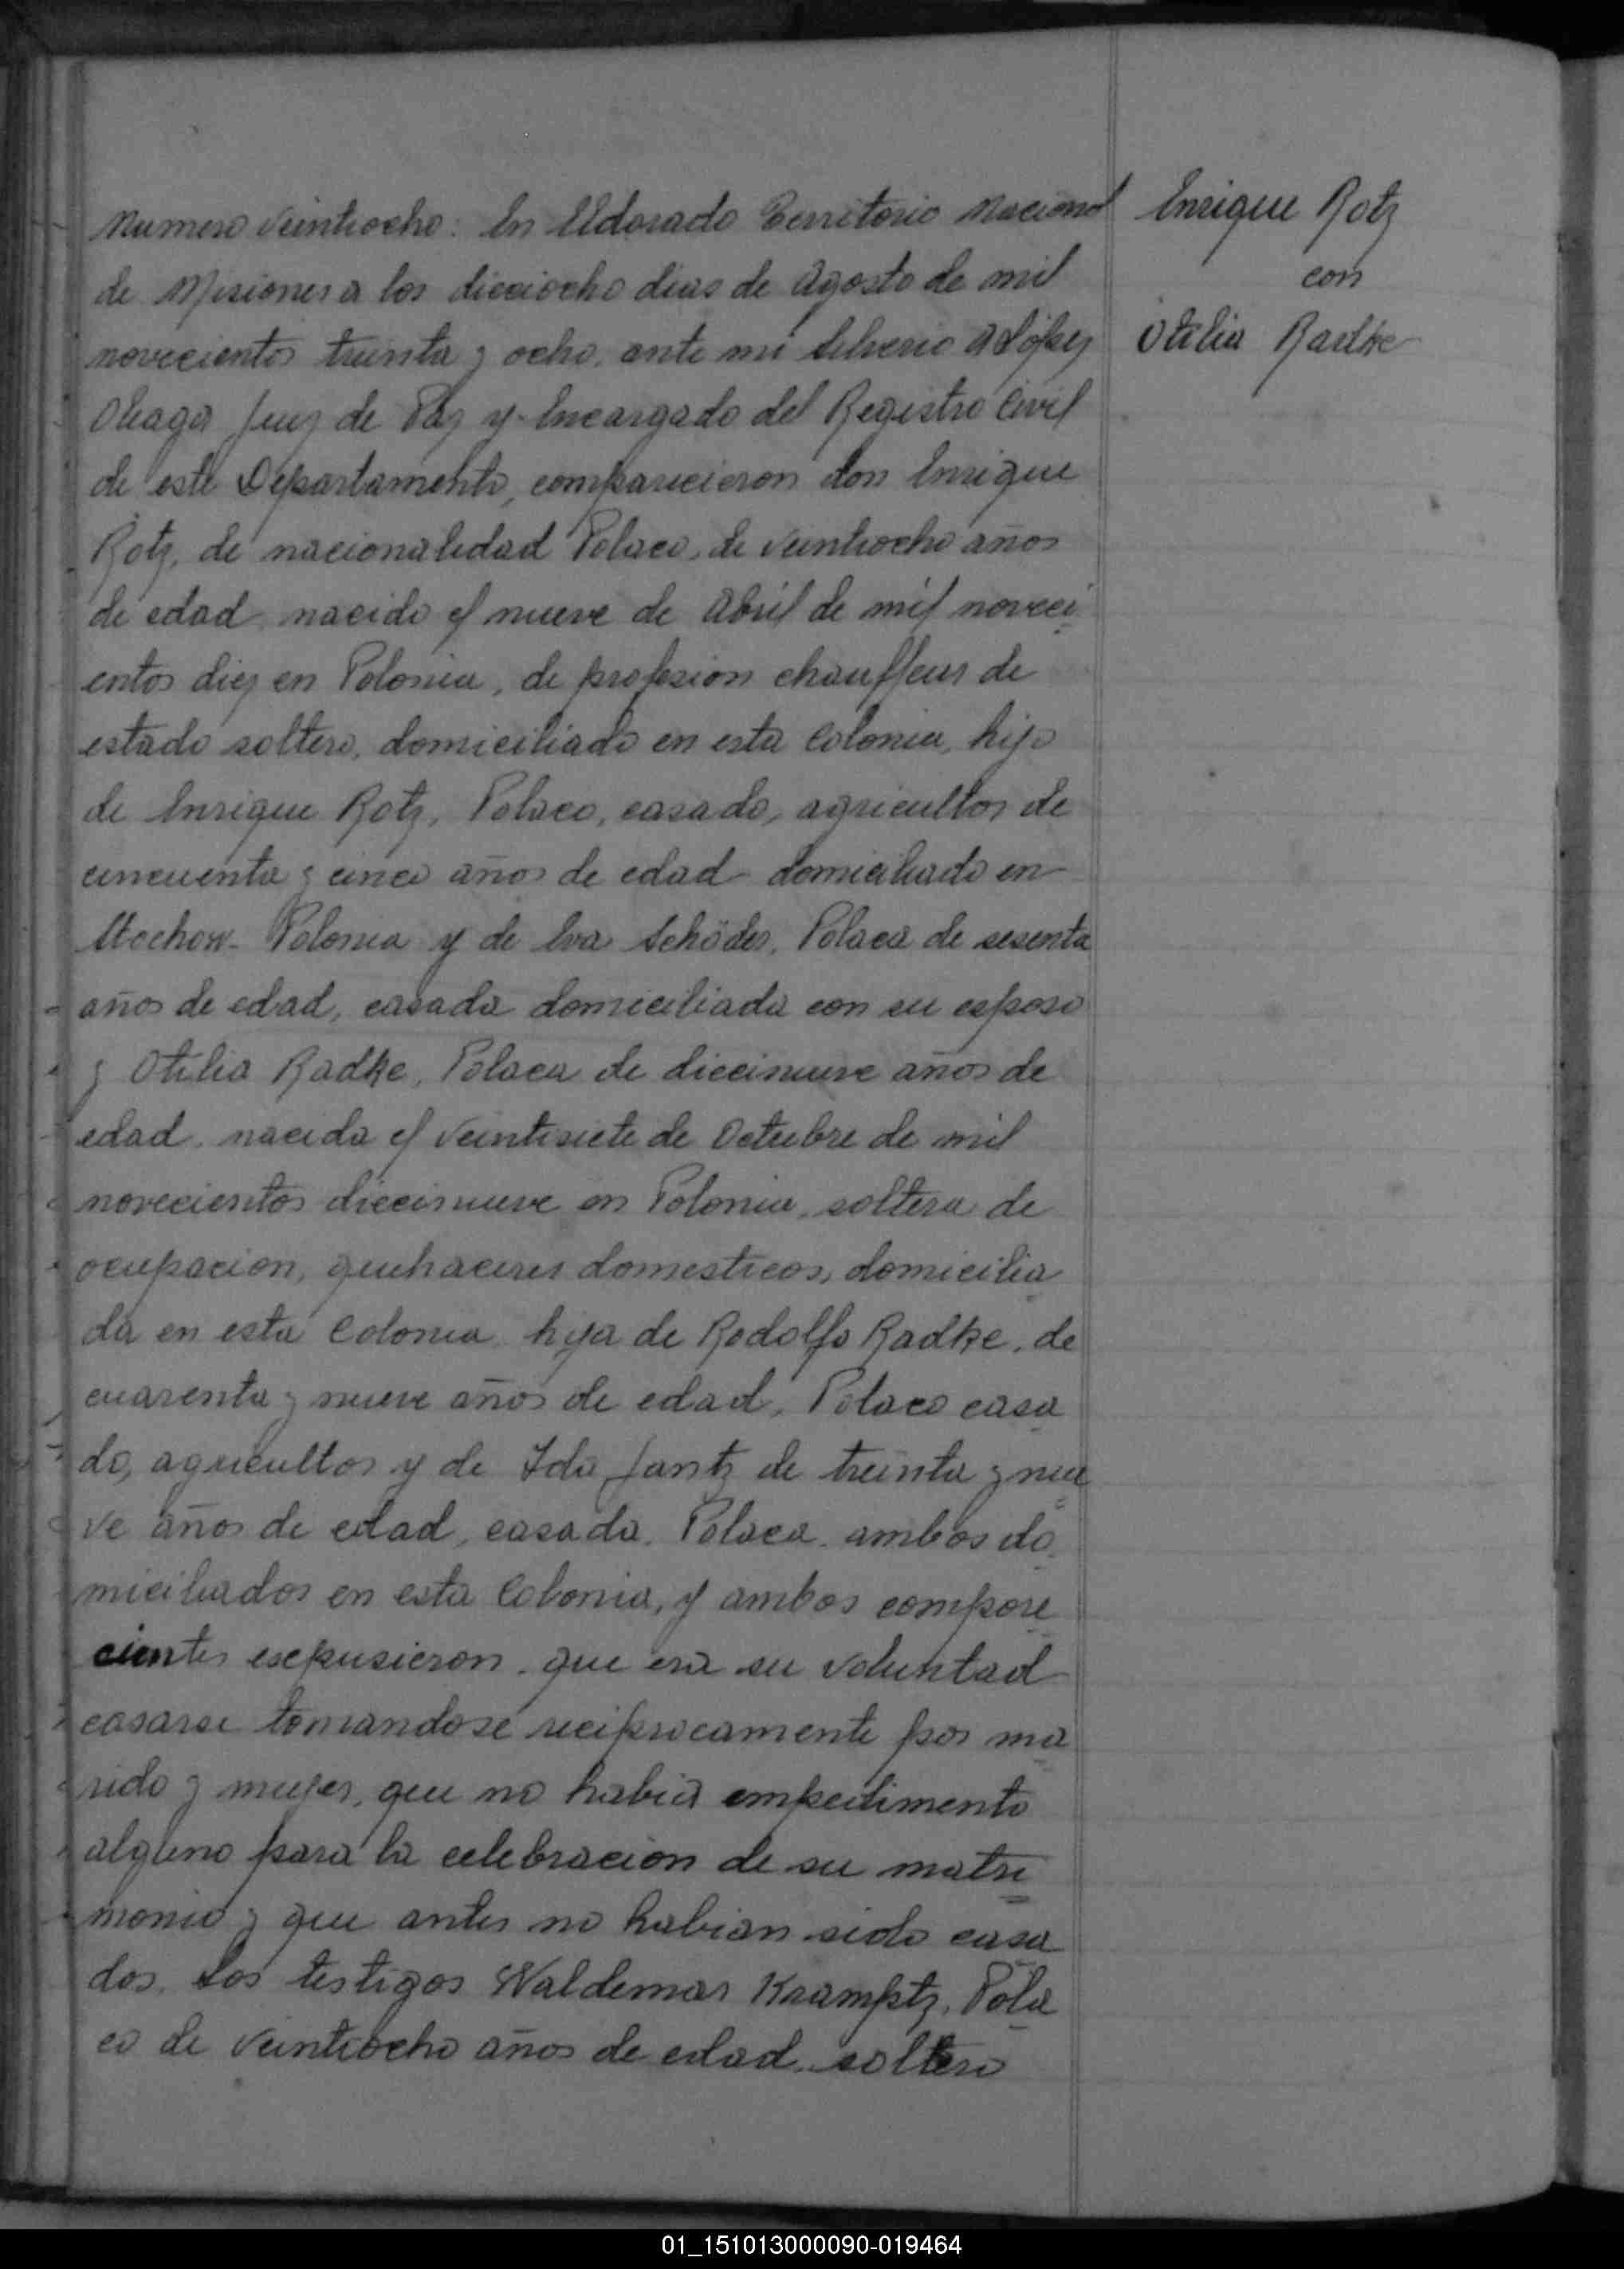 Numero Veintiocho: En Eldorado Territorio Nacional
de Misiones a los dieciocho dias de Agosto de mil
novecientos treinta y ocho, ante mi Silverio A López
Oleaga Juez de Paz y Encargado del Registro Civil
de este Departamento, comparecieron don Enrique
Rotz, de nacionalidad Polaco, de veintiocho años
de edad, nacido el nueve de Abril de mil noveci
entos diez en Polonia, de profesion chauffeur de
estado soltero, domiciliado en esta Colonia, hijo
de Enrique Rotz, Polaco, casado, agricultor de
cincuenta y cinco años de edad domiciliado en
Polonia y de Eva Schöder, Polaca de sesenta
años de edad, casada domiciliada con su esposo
y Otilia Radke, Polaca de diecinueve años de
edad, nacida el veintisiete de Octubre de mil
novecientos diecinueve en Polonia, soltera de
ocupacion, quehaceres domesticos, domicilia
da en esta Colonia, hija de Rodolfo Radke, de
cuarenta y nueve años de edad, Polaco casa
do, agricultor y de Ida Jantz de treinta y nue
ve años de edad, casada, Polaca, ambos do
miciliados en esta Colonia, y ambos compare
cientes expusieron, que era su voluntad
casarse tomandose reciprocamente por ma
rido y mujer, que no habia impedimento
alguno para la celebracion de su matri
monio y que antes no habian sido casa
dos. Los testigos Waldemar Krampitz, Pola
co de veintiocho años de edad, soltero
Enrique Rotz
con
Otilia Radke
01_151013000090-019464